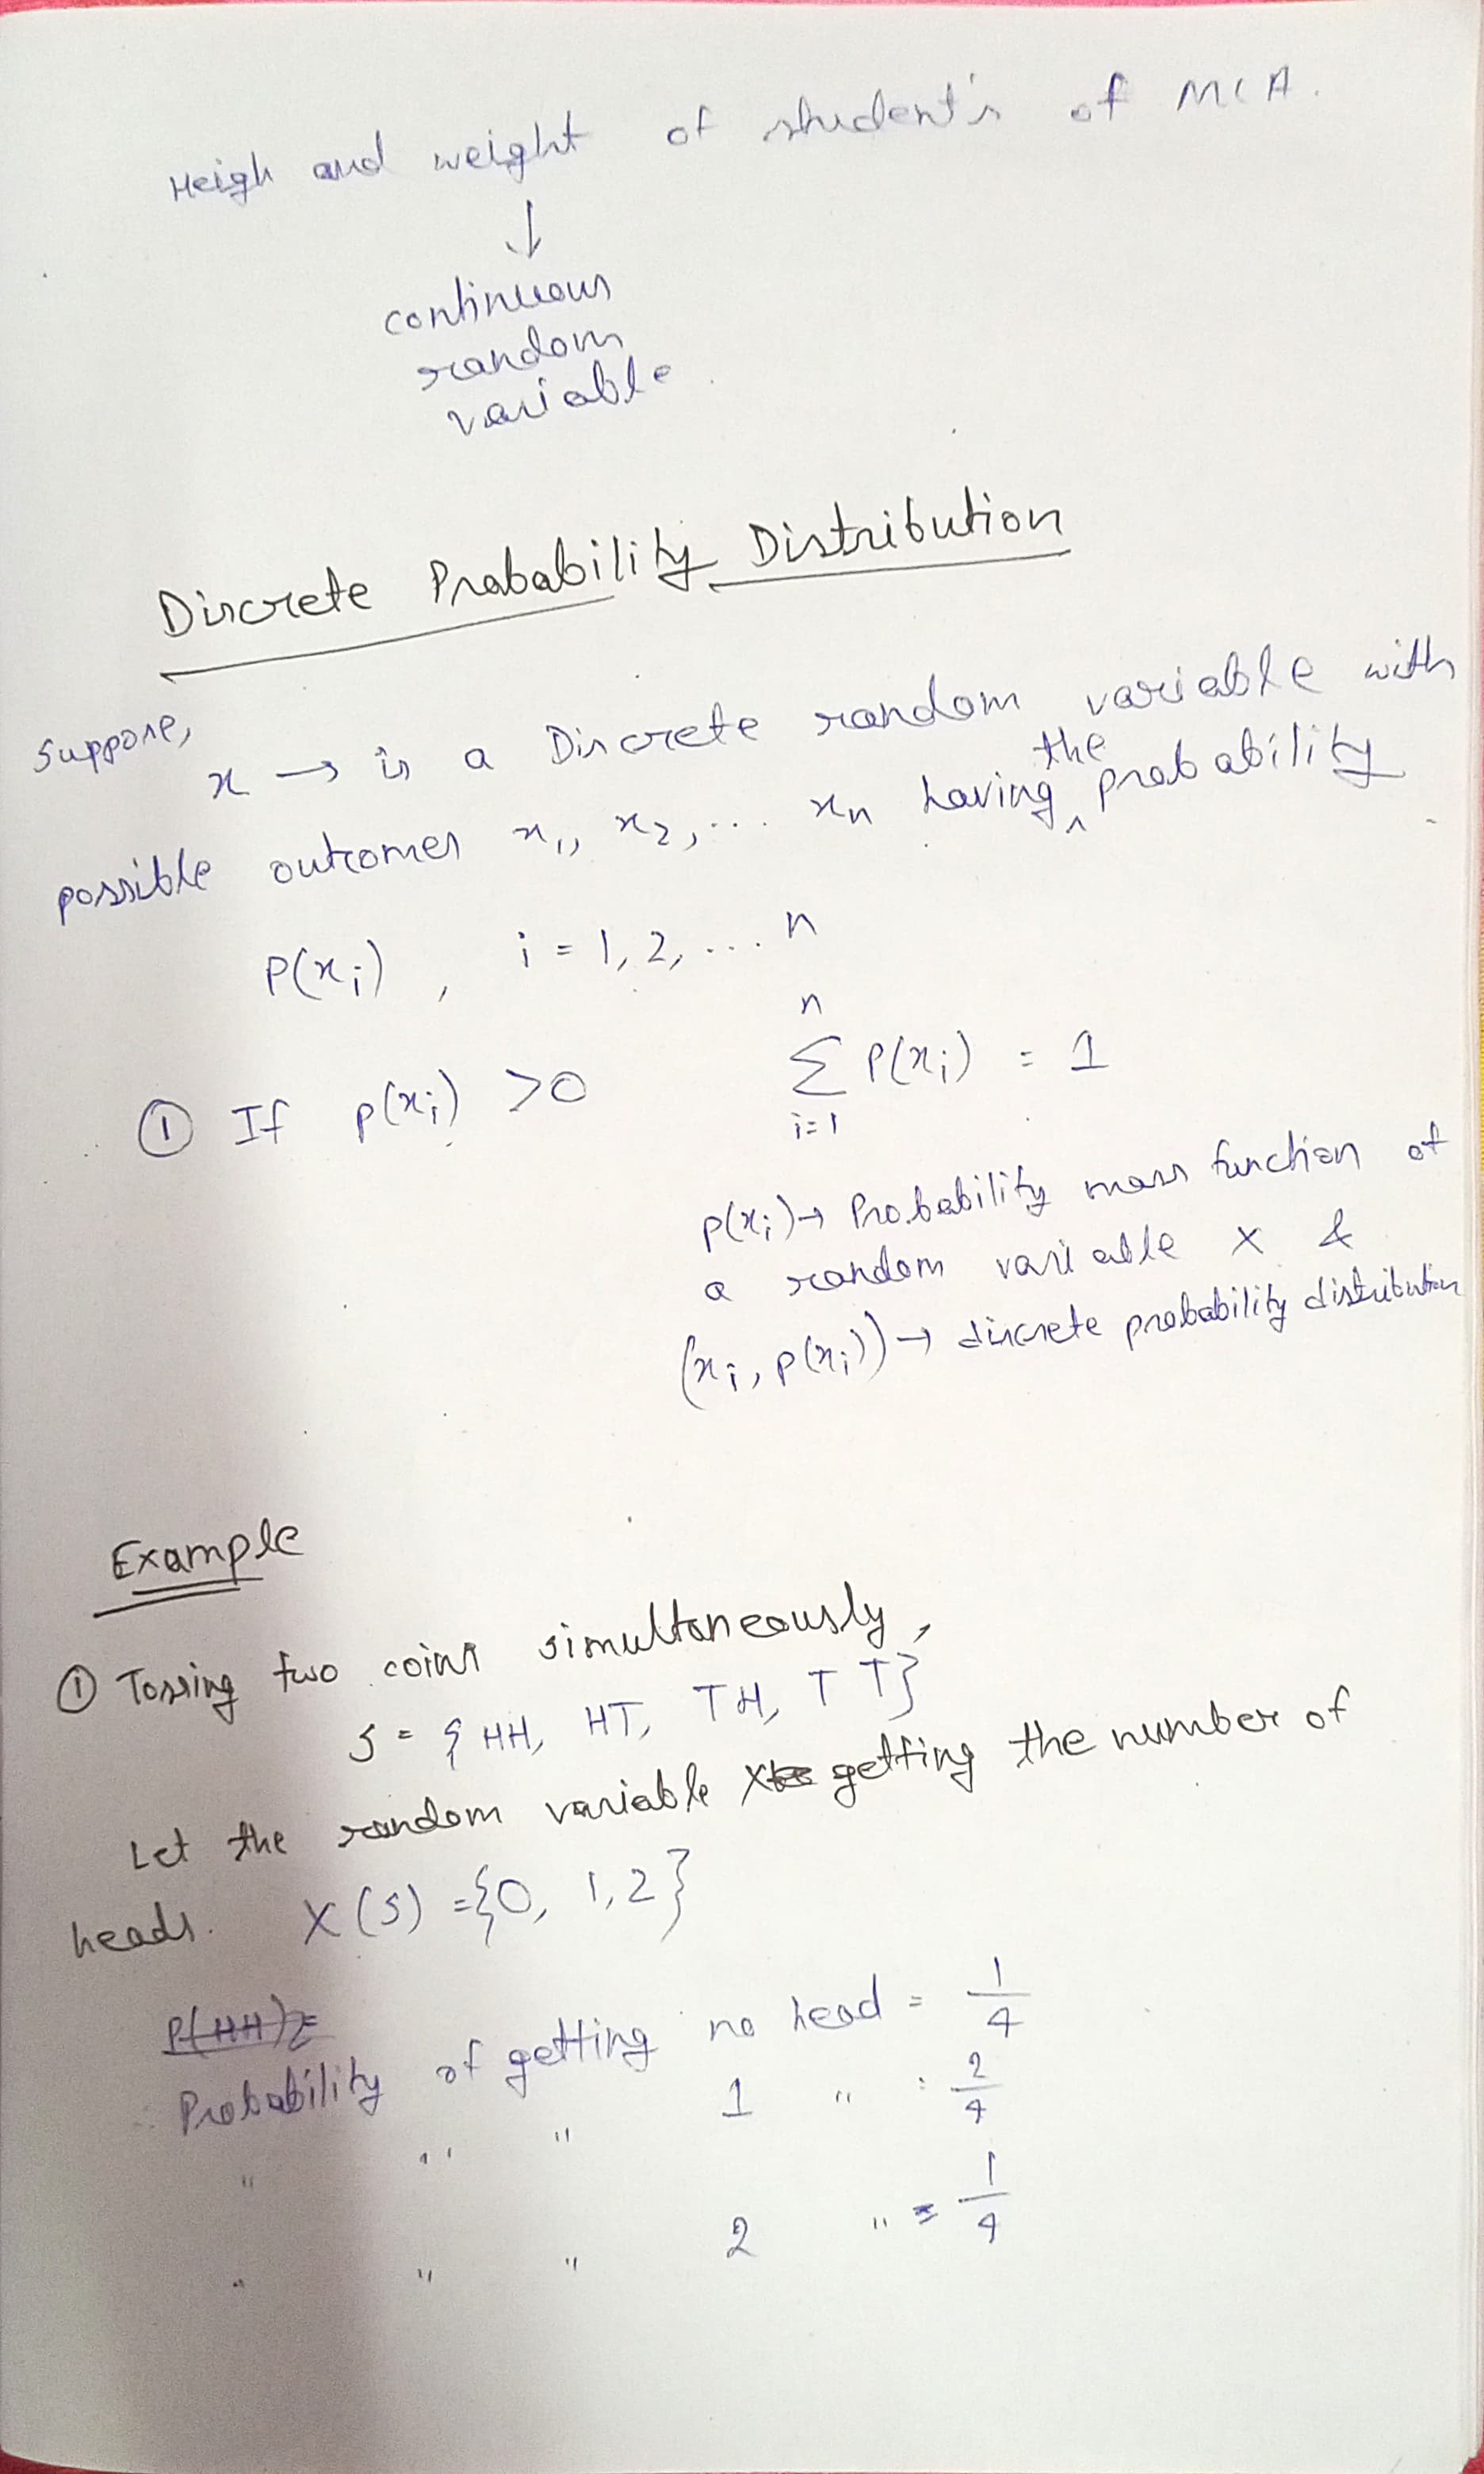 Heigh and weight of student's of MCA.
↓
continuous
random
variable.
Discrete Probability Distribution
Suppose,
x → is a Discrete random variable with
possible outcomes x₁, x₂, ... xn having ^the probability
P(xi), i = 1, 2, ... n
① If p(xi) >0 n∑i=1 P(xi) = 1
p(xi) → Probability mass function of
a random variable X &
(xi, p(xi)) → discrete probability distribution
Example
① Tossing two coins simultaneously,
S = { HH, HT, TH, TT}
Let the random variable X getting the number of
heads. X(S) = {0, 1, 2}
P(HH) =
Probability of getting no head = 1/4
" " " 1 " = 2/4
" " " 2 " = 1/4